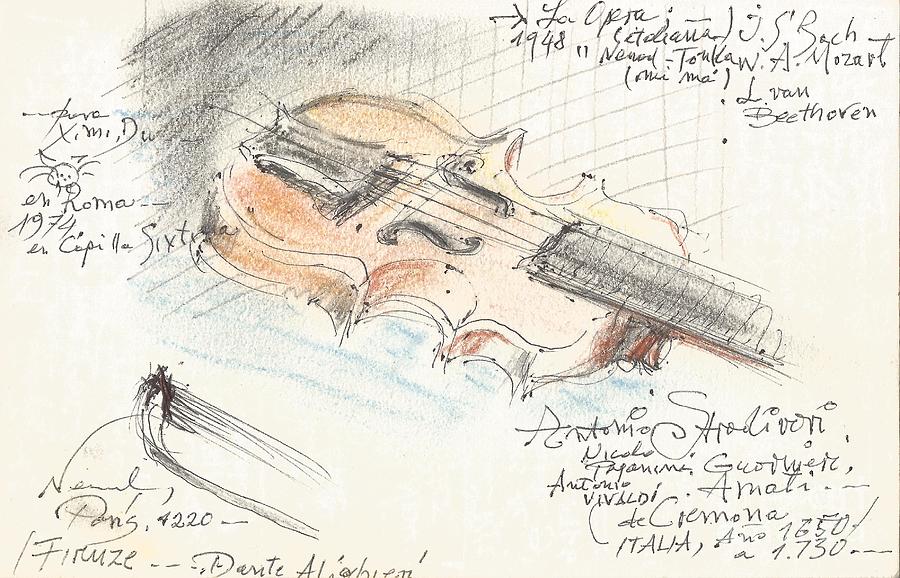 → La Opera;
1948 " (Gitana)
Nenad-Tonka
(mi má)
J. S. Bach
W. A. Mozart
L. van
Beethoven
para
Ximi, Du
en Roma --
1974
en Capilla Sixtina
Antonio Stradivari
Nicolo
Paganini. Guarnieri,
Antonio
VIVALDI. Amati. --
(de Cremona
ITALIA, Año 1650/
a 1.730 --
Nenad,
París. 1220 —
/Firenze --- Dante Alighieri